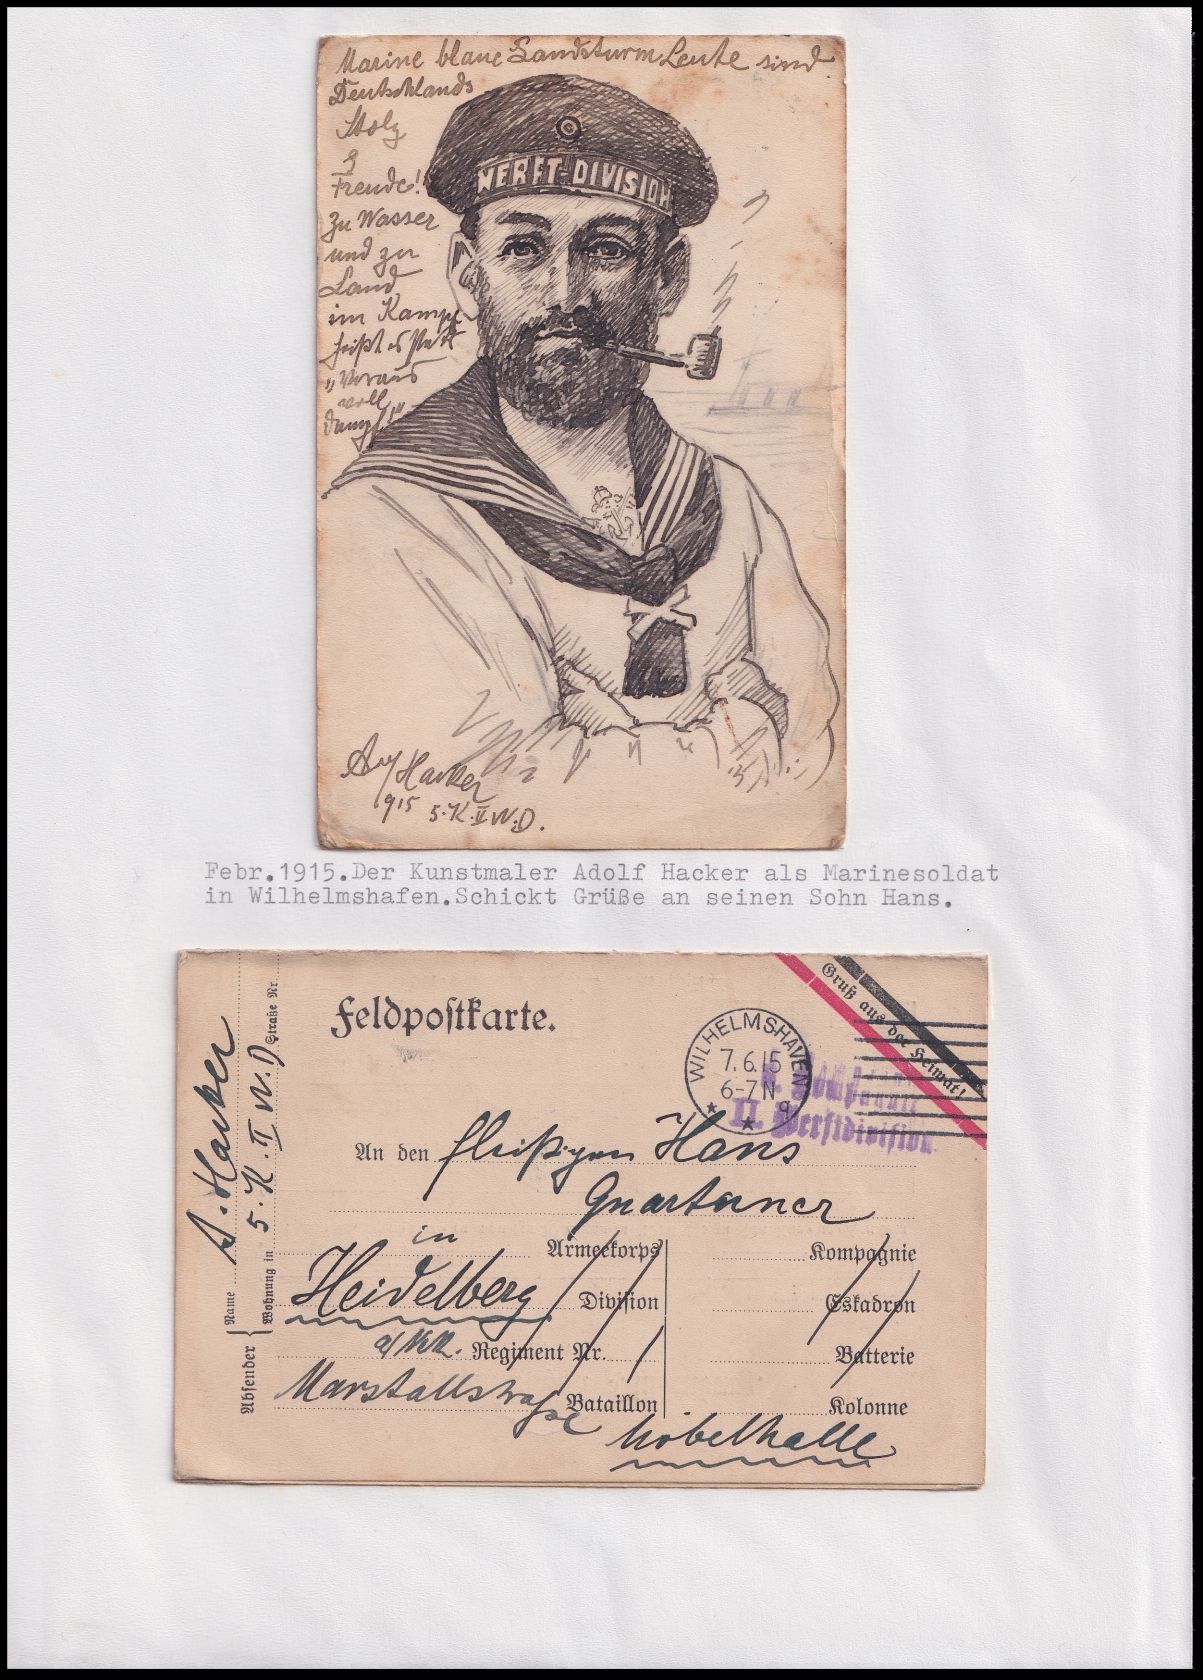 Marine blaue Landsturm Leute sind
Deutschlands
Stolz
&
Freude!
Zu Wasser
und zu
Land
im Kampf
heißt es stets
"Voraus
voll
Dampf!"
WERFT-DIVISION
Adf Hacker
1915 5.K.II W.D.
Febr.1915.Der Kunstmaler Adolf Hacker als Marinesoldat
in Wilhelmshafen.Schickt Grüße an seinen Sohn Hans.
Feldpostkarte.
Gruß aus der Heimat!
WILHELMSHAVEN
7.6.15
6-7N
* q *
Kompagnie
II. Werftdivision
An den fleißigen Hans
Quartaner
in
Armeekorps Kompagnie
Heidelberg Division Eskadron
a/Nck. Regiment Nr. Batterie
Marstallstraße Bataillon Kolonne
Möbelhalle
Absender
Name A. Hacker
Wohnung in 5. K. II W. D. Straße Nr.